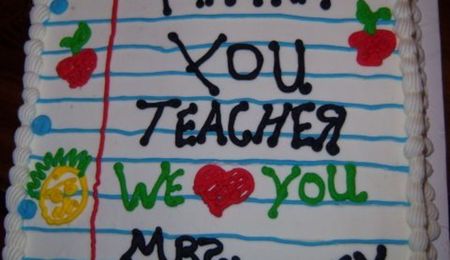 YOU
TEACHER
WE ❤ YOU
MRS